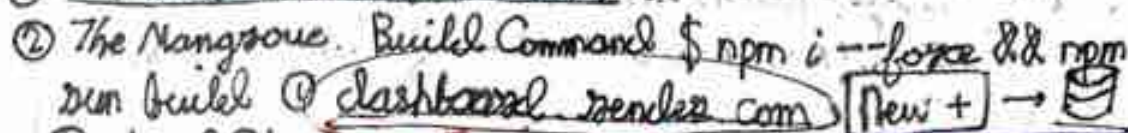 ② The Mangrove. Build Command $ npm i --force && npm
run build ① dashboard.render.com New + →